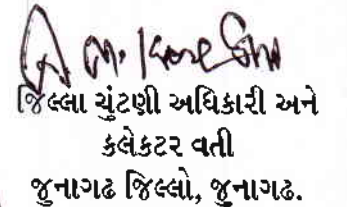 જિલ્લા ચુંટણી અધિકારી અને
કલેકટર વતી
જુનાગઢ જિલ્લો, જુનાગઢ.